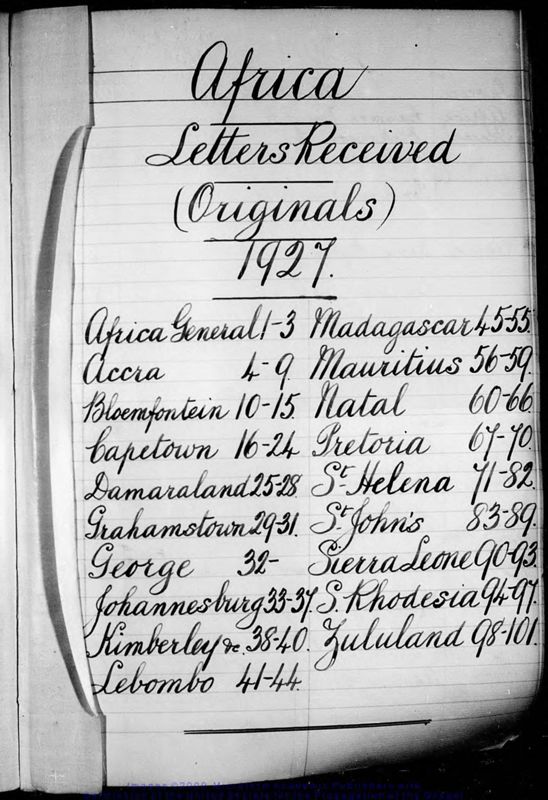 Africa
Letters Received
(Originals)
1927.
Africa General 1-3
Accra 4-9
Bloemfontein 10-15
Capetown 16-24
Damaraland 25-28
Grahamstown 29-31
George 32-
Johannesburg 33-37
Kimberley &c. 38-40.
Lebombo 41-44
Madagascar 45-55
Mauritius 56-59
Natal 60-66
Pretoria 67-70
St. Helena 71-82
St. John's 83-89
Sierra Leone 90-93
S. Rhodesia 94-97
Zululand 98-101